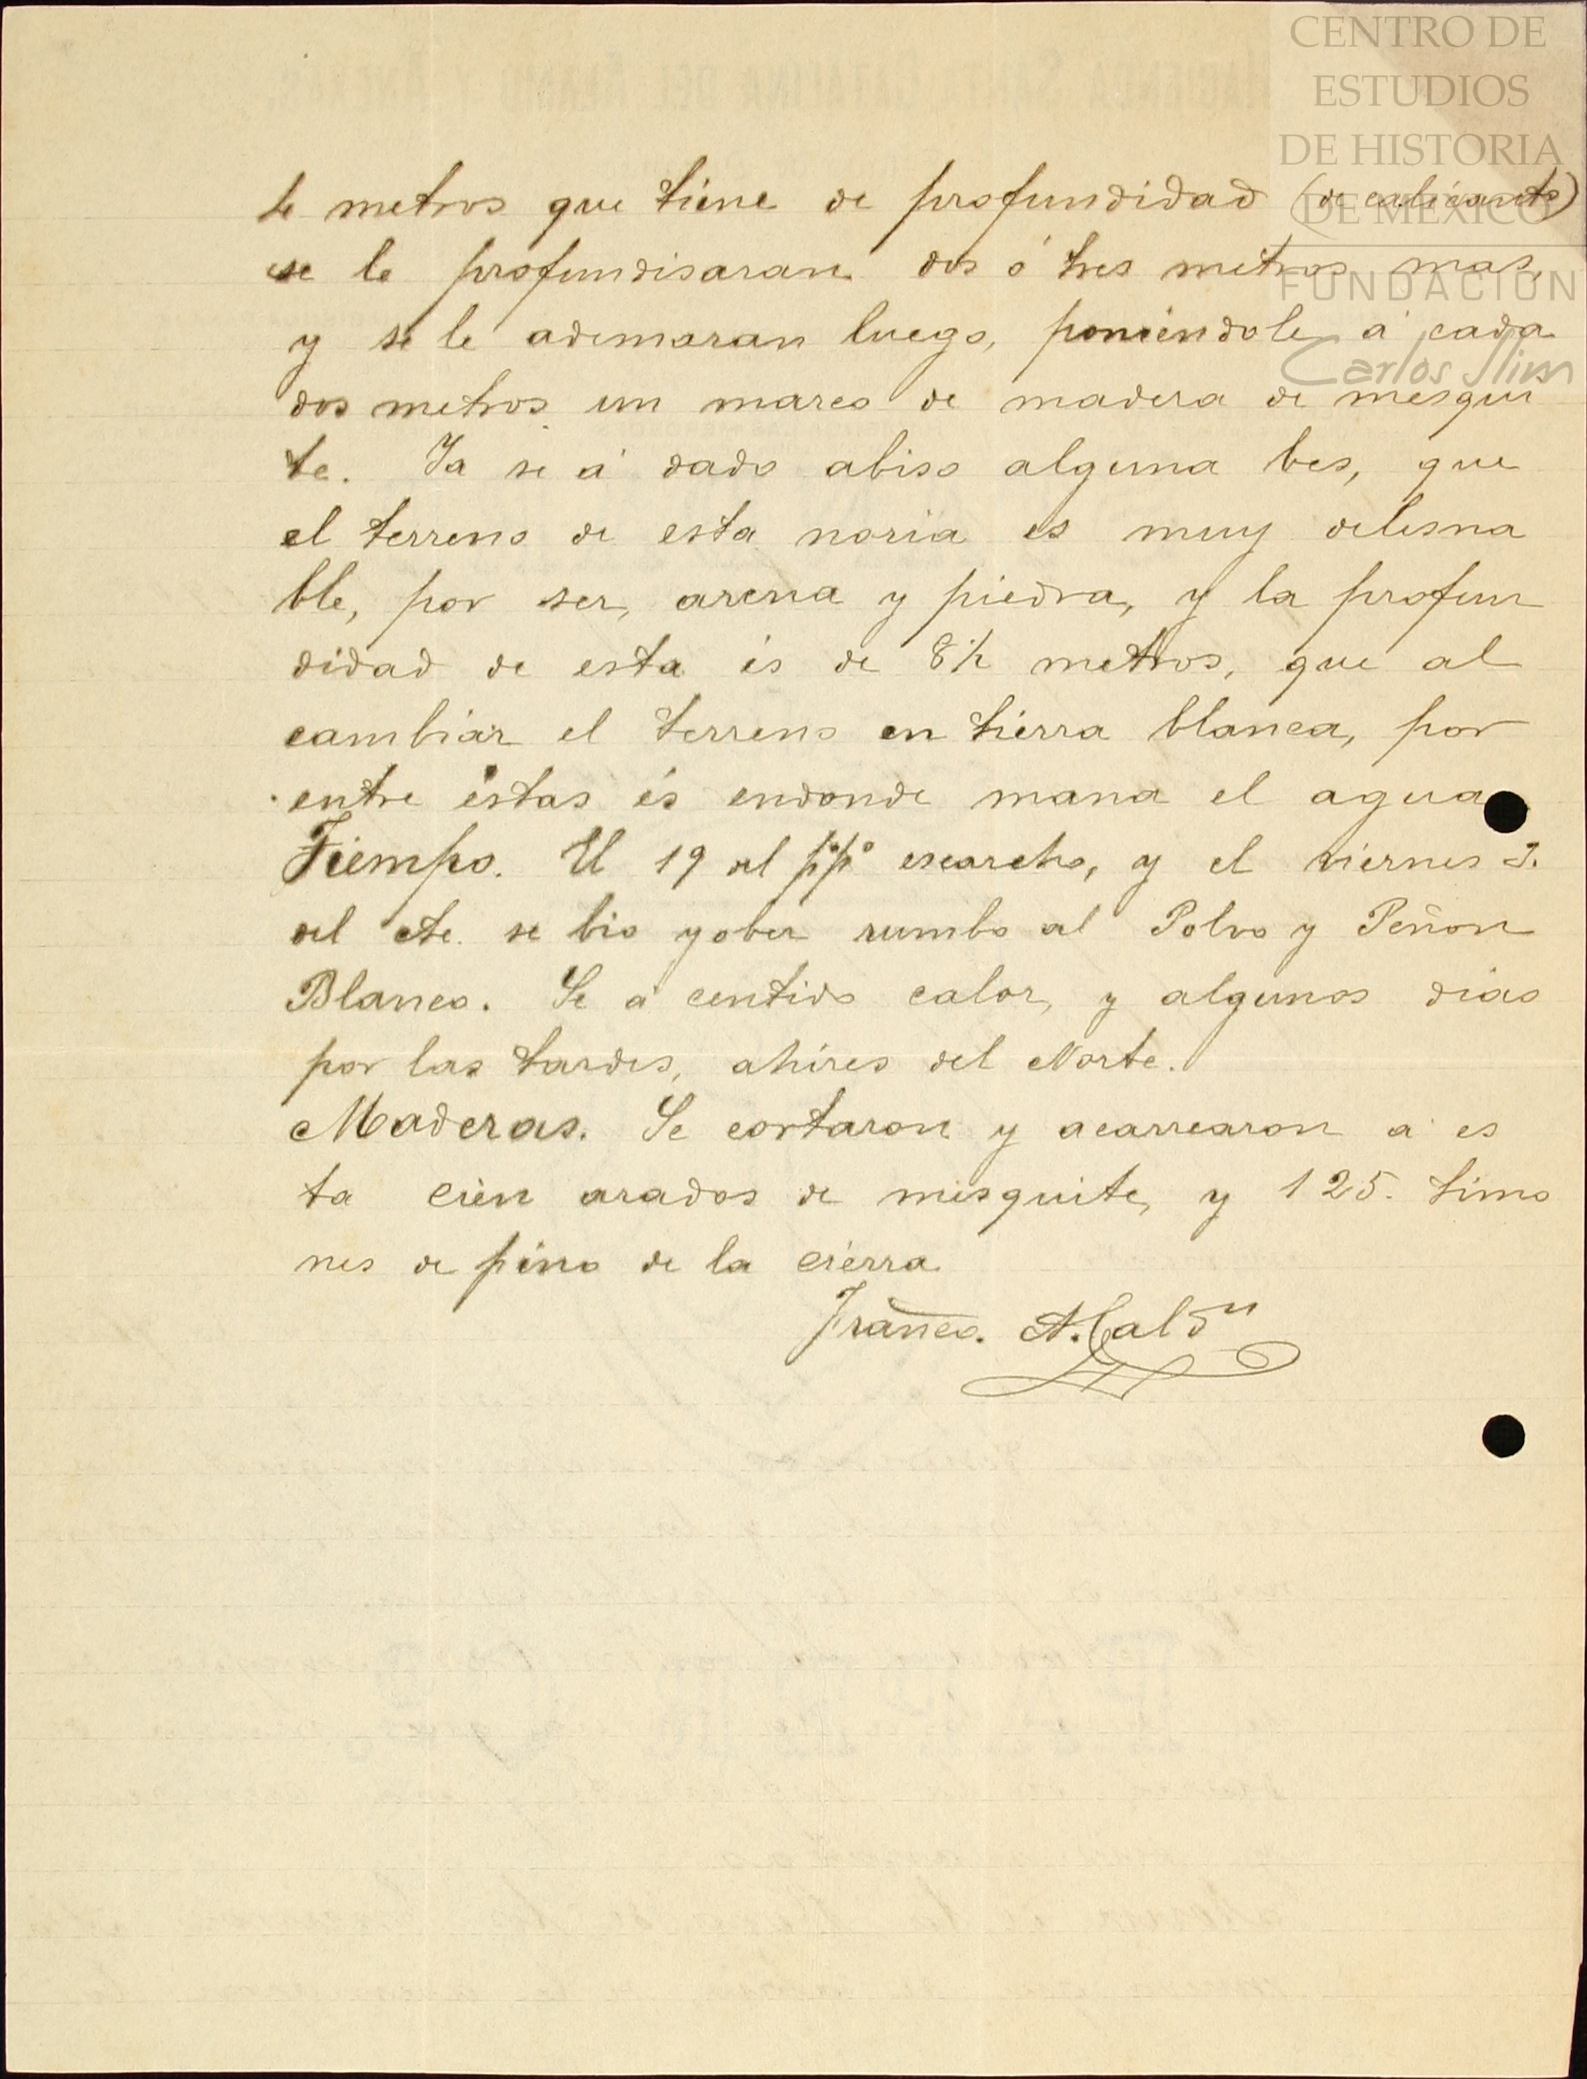 CENTRO DE
ESTUDIOS
DE HISTORIA
DE MÉXICO
FUNDACIÓN
Carlos Slim
te metros que tiene de profundidad (de calicanto)
se le profundisaran dos ó tres metros mas,
y se le ademaran luego, poniéndole á cada
dos metros un marco de madera de mesqui
te. Ya se á dado abiso alguna bes, que
el terreno de esta noria es muy delesna
ble, por ser, arena y piedra, y la profun
didad de esta és de 8½ metros, que al
cambiar el terreno en tierra blanca, por
entre éstas és endonde mana el agua
Tiempo. El 19 del p.p° escarcho, y el viernes 3.
del cte. se bio yober rumbo al Polvo y Peñon
Blanco. Se á centido calor, y algunos dias
por las tardes, ahires del Norte.
Maderas. Se cortaron y acarrearon a es
ta cien arados de mesquite, y 125. timo
nes de pino de la cierra
Franco. A. Cal